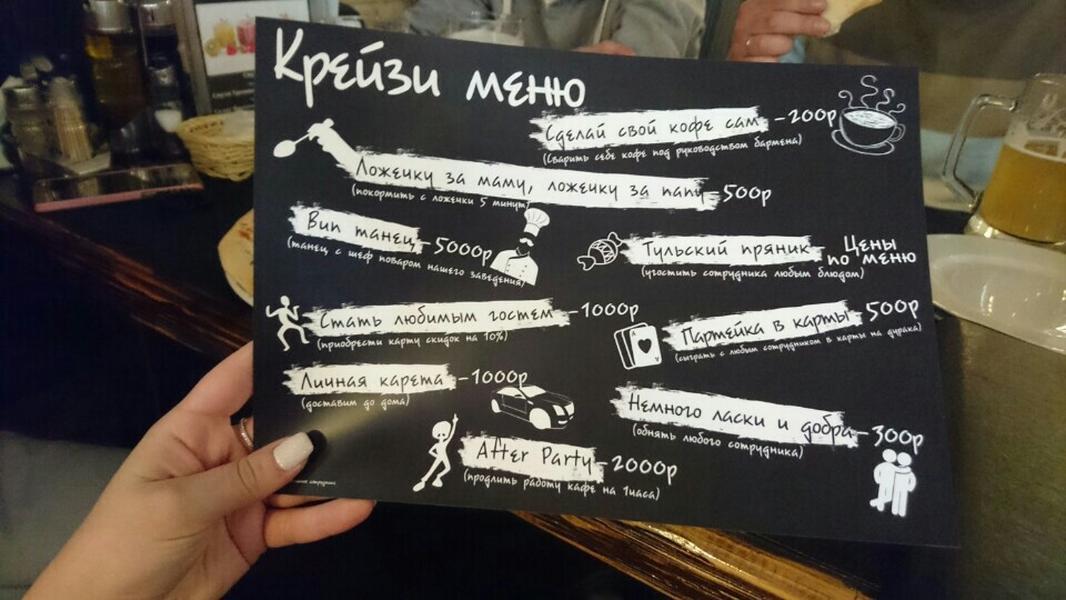 Крейзи меню
Сделай свой кофе сам -200р
(Сварить себе кофе под руководством бармена)
Ложечку за маму, ложечку за папу -500р
(покормить с ложечки 5 минут)
Вип танец -5000р
(танец с шеф поваром нашего заведения)
Тульский пряник - Цены по меню
(угостить сотрудника любым блюдом)
Стать любимым гостем -1000р
(приобрести карту скидок на 10%)
Партейка в карты -500р
(сыграть с любым сотрудником в карты на дурака)
Личная карета -1000р
(доставим до дома)
Немного ласки и добра -300р
(обнять любого сотрудника)
After Party -2000р
(продлить работу кафе на 1часа)